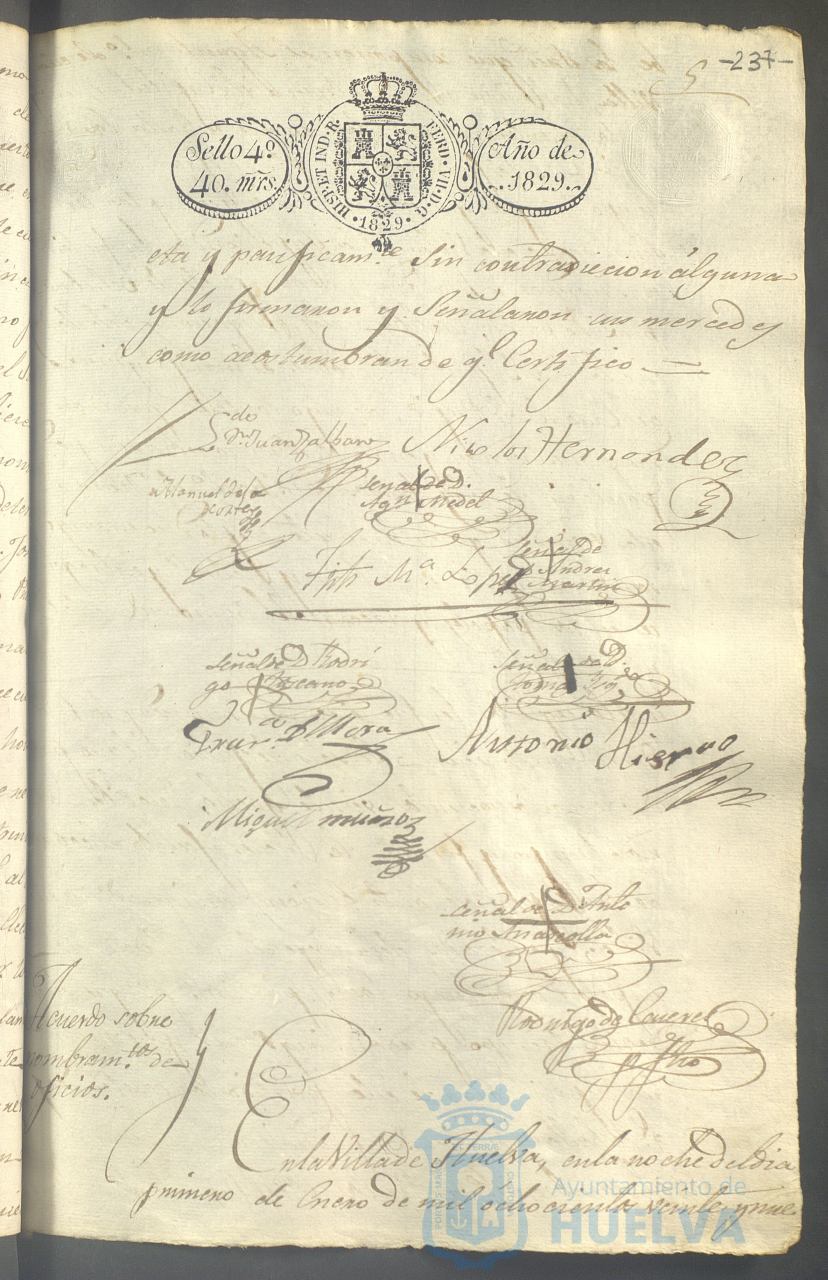 -237-
5
Sello 4º
40. mrs.
HISP. ET IND. R. FERD. VII. D. G.
·1829·
Año de
1829.
eta y pacificamte sin contradiccion alguna
y lo firmaron y señalaron sus mercedes
como acostumbran de q.e Certifico
Ldo
Dn Juan Nicolas Hernandez
Manuel de la
Corte
señal de D.
Agn Medel
Ma. Lopez
señal de
D Andres
Martin
señal de D Rodri
go
señal de D.
Tomas
Franco de Mora
Antonio Hierro
Miguel muñoz
señal de D Anto
nio
Rodrigo de
Acuerdo sobre
nombram.tos de
oficios.
En la Villa de Huelva, en la noche del dia
primero de Enero de mil ochocientos veinte y nue
Ayuntamiento de
HUELVA